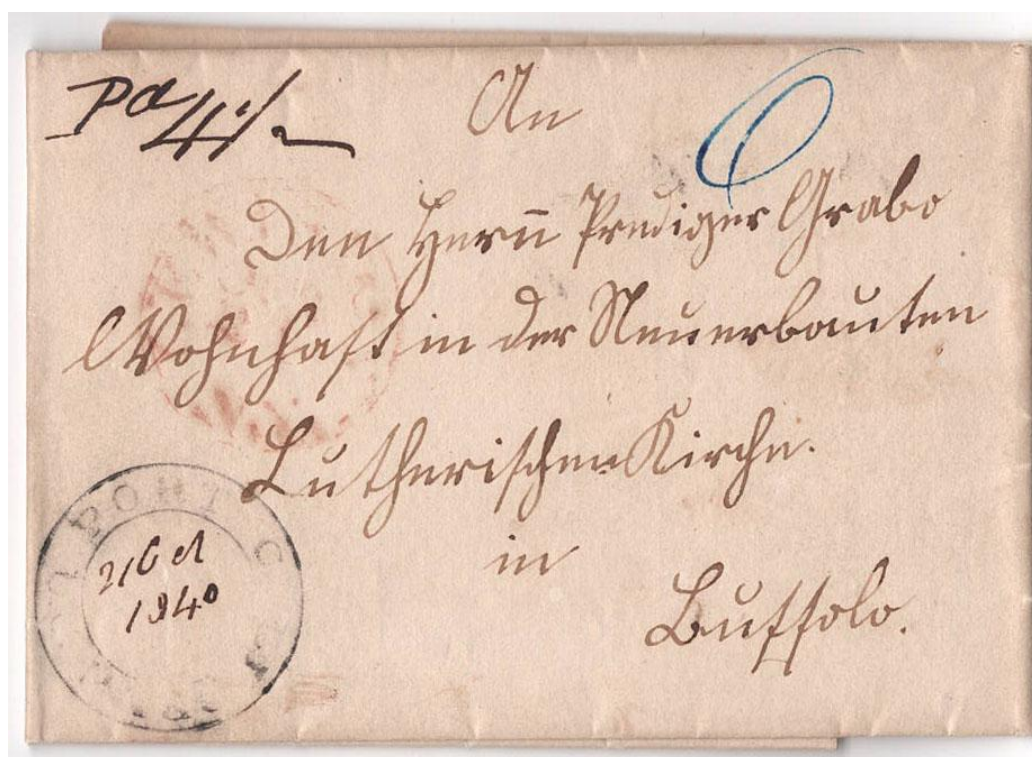 Pd 4½
An
6
Den Herrn̄ Prediger Grabo
Wohnhaft in der Neuerbauten
Lutherischen Kirche.
in
Buffolo.
PORT C
21 Oct
1840